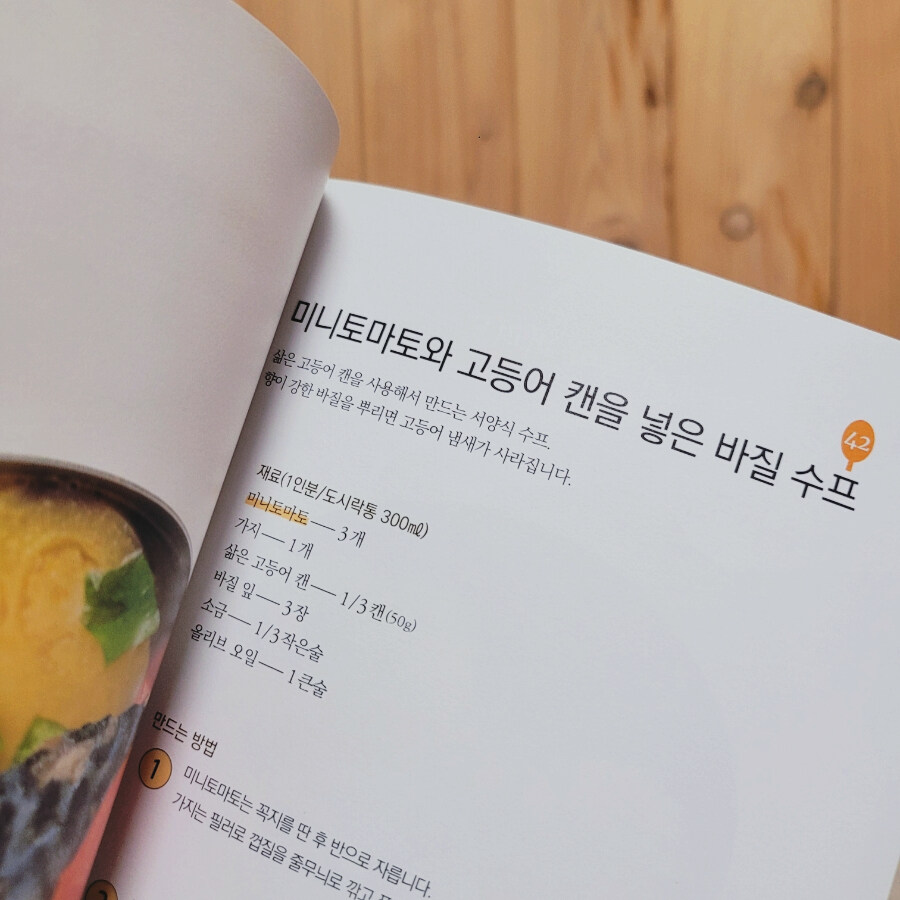 미니토마토와 고등어 캔을 넣은 바질 수프
42
삶은 고등어 캔을 사용해서 만드는 서양식 수프.
향이 강한 바질을 뿌리면 고등어 냄새가 사라집니다.
재료(1인분/도시락통 300㎖)
미니토마토 — 3개
가지 — 1개
삶은 고등어 캔 — 1/3캔(50g)
바질 잎 — 3장
소금 — 1/3작은술
올리브 오일 — 1큰술
만드는 방법
1 미니토마토는 꼭지를 딴 후 반으로 자릅니다.
가지는 필러로 껍질을 줄무늬로 깎고